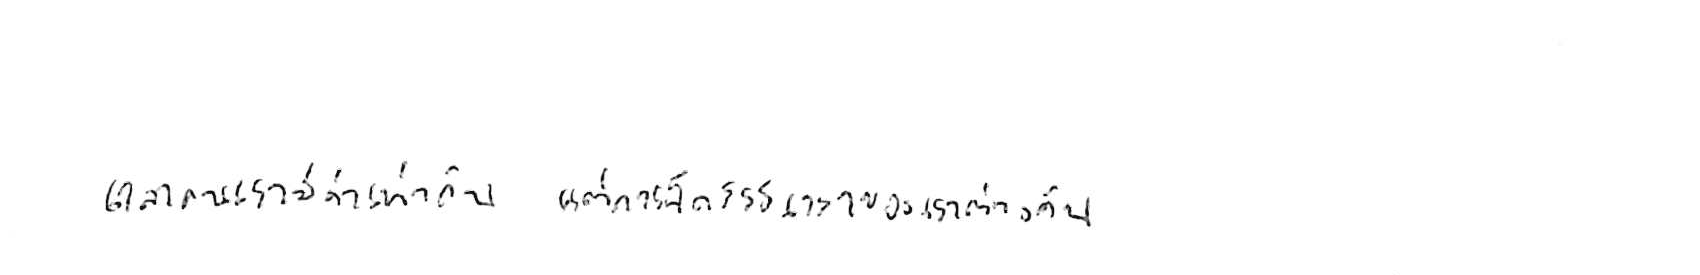 เวลาคนเรามีค่าเท่ากัน แต่การจัดสรรเวลาของเราต่างกัน